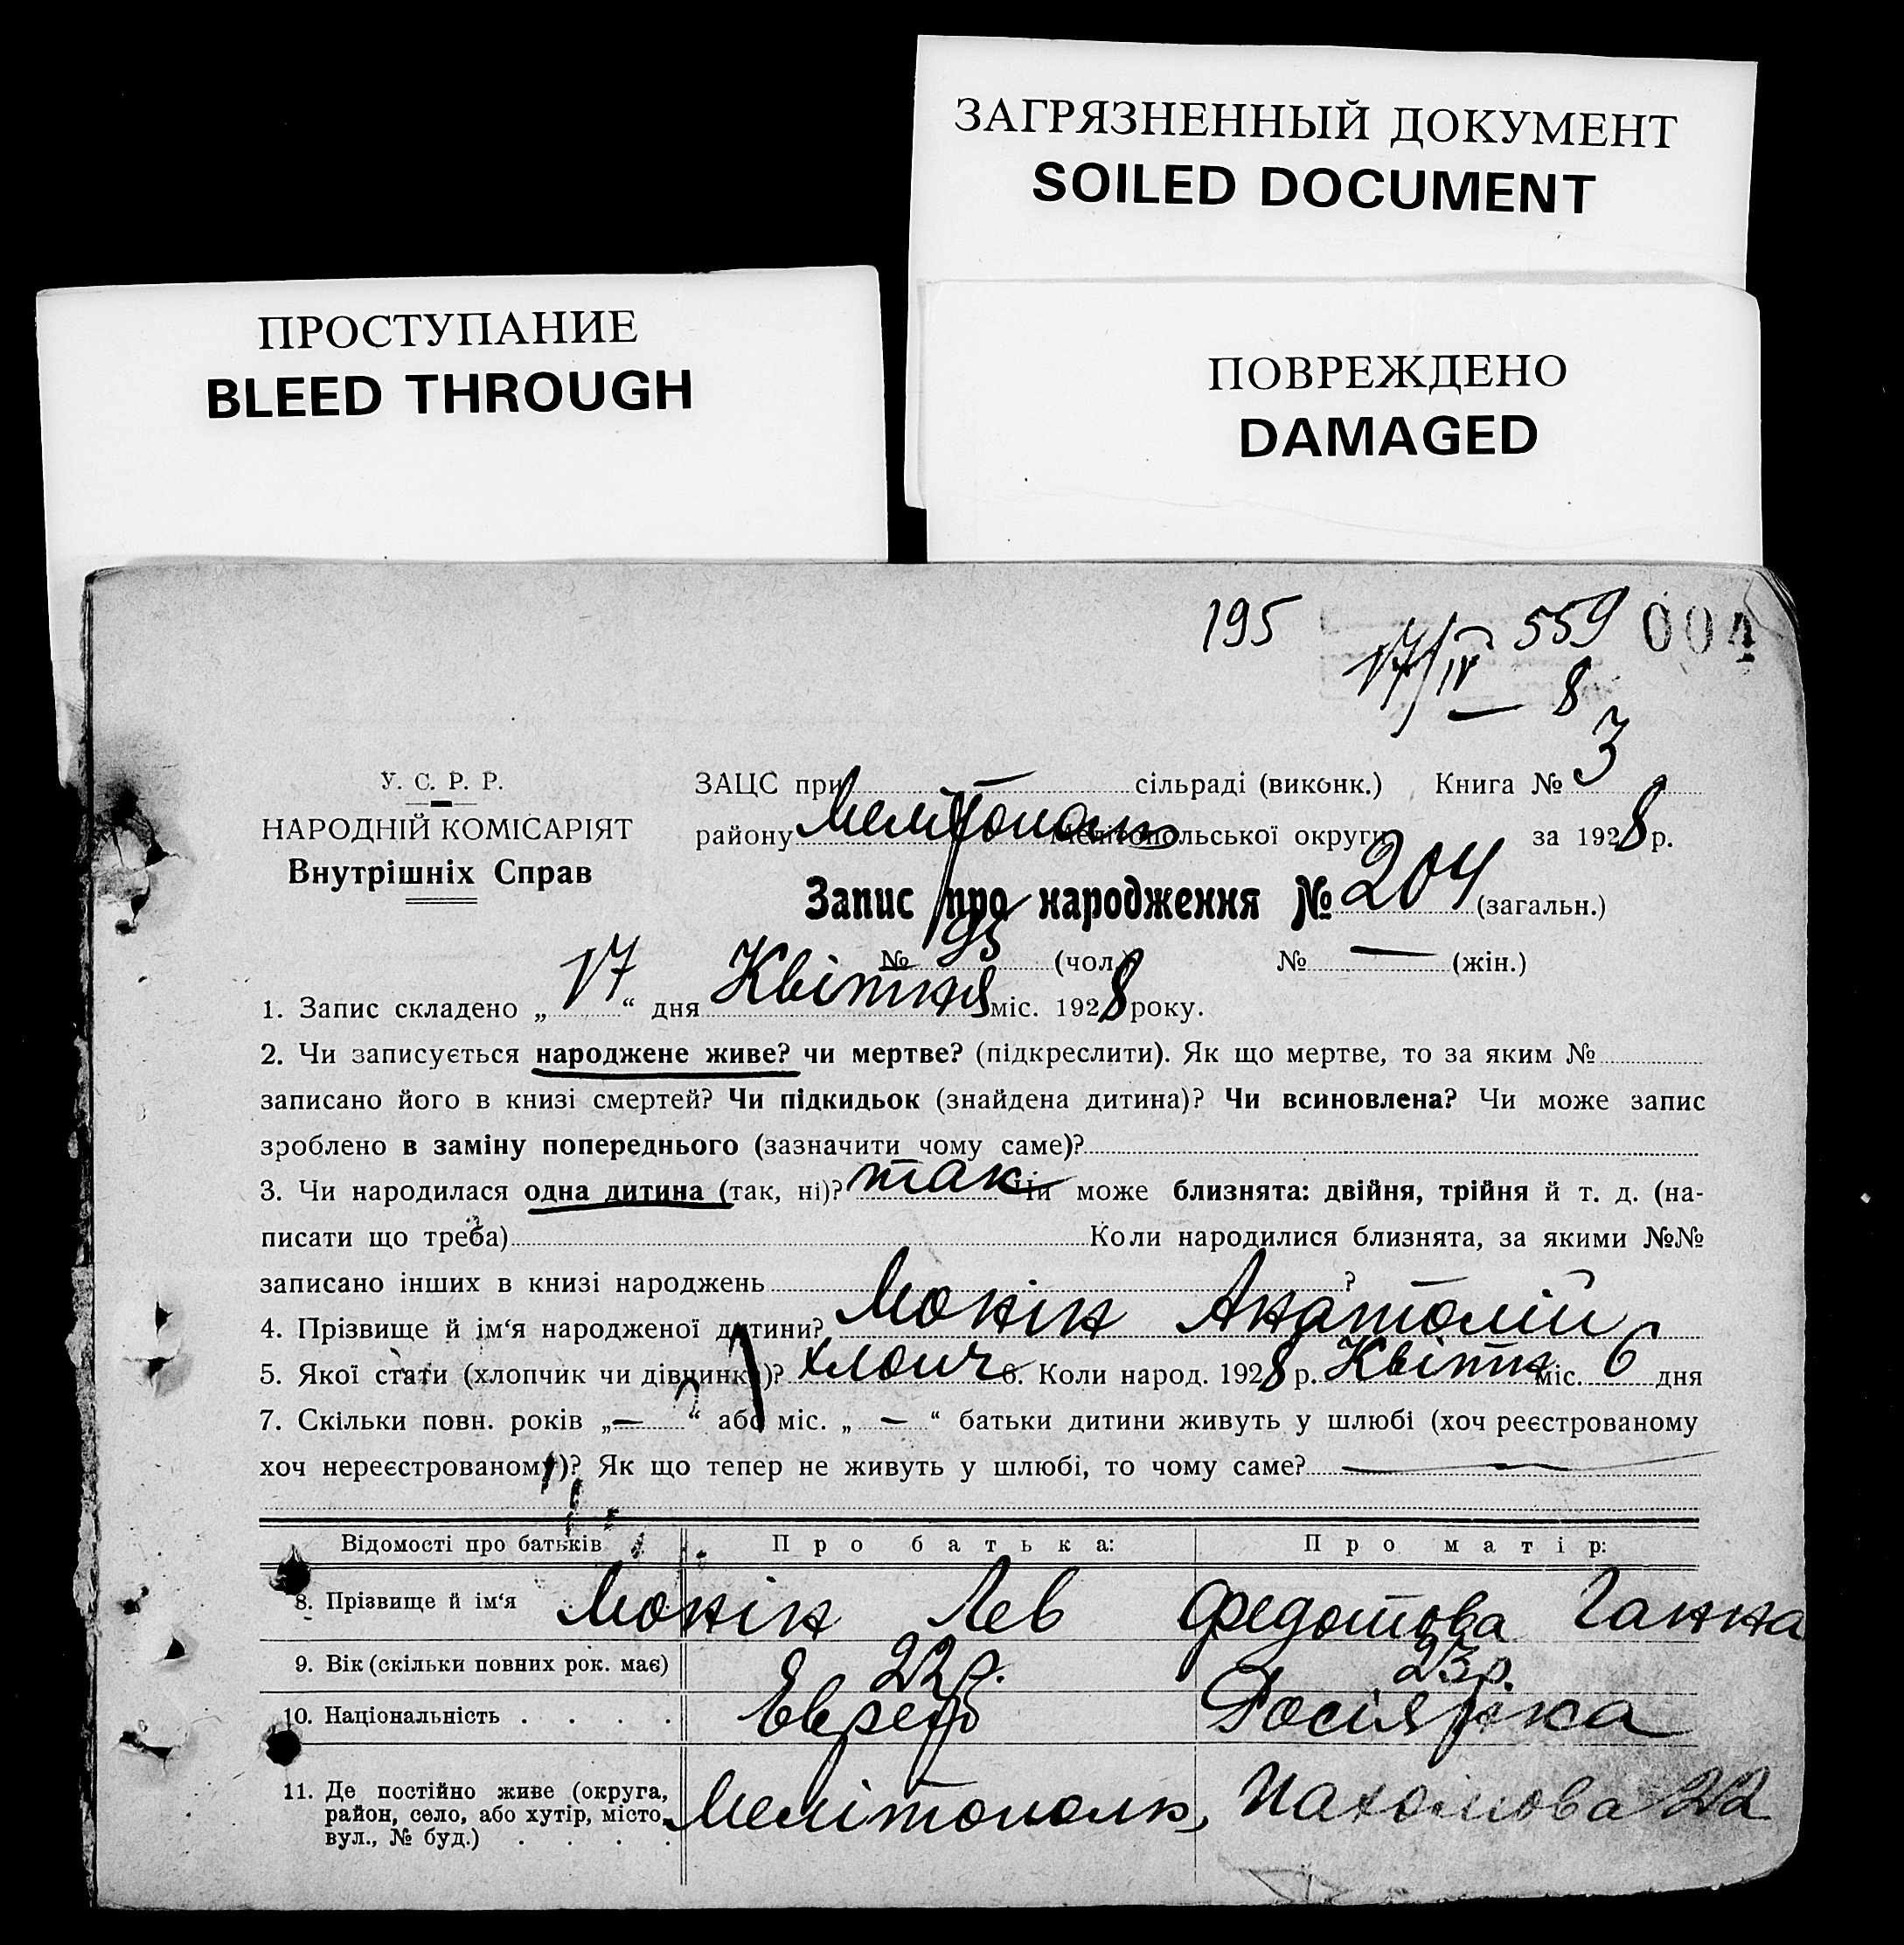 ЗАГРЯЗНЕННЫЙ ДОКУМЕНТ
SOILED DOCUMENT
ПРОСТУПАНИЕ
BLEED THROUGH
ПОВРЕЖДЕНО
DAMAGED
195
17/IV 559 004
8
У. С. Р. Р.
НАРОДНІЙ КОМІСАРІЯТ
Внутрішніх Справ
ЗАЦС при сільраді (виконк.) Книга № 3
району Мелітополь Мелітопольської округи за 1928 р.
Запис про народження № 204 (загальн.)
№ 95 (чол.) № — (жін.)
1. Запис складено „ 17 “ дня Квітня міс. 1928 року.
2. Чи записується народжене живе? чи мертве? (підкреслити). Як що мертве, то за яким №
записано його в книзі смертей? Чи підкидьок (знайдена дитина)? Чи всиновлена? Чи може запис
зроблено в заміну попереднього (зазначити чому саме)?
3. Чи народилася одна дитина (так, ні)? так Чи може близнята: двійня, трійня й т. д. (на-
писати що треба) Коли народилися близнята, за якими №№
записано інших в книзі народжень ?
4. Прізвище й ім‘я народженої дитини? Монін Анатолій
5. Якої стати (хлопчик чи дівчинка)? хлопч 6. Коли народ. 1928 р. Квітн міс. 6 дня
7. Скільки повн. років „ — “ або міс. „ — “ батьки дитини живуть у шлюбі (хоч реєстрованому
хоч нереєстрованому)? Як що тепер не живуть у шлюбі, то чому саме? —
Відомості про батьків Про батька: Про матір:
8. Прізвище й ім‘я Монін Лев Федотова Ганна
9. Вік (скільки повних рок. має) 22 р. 23 р.
10. Національність . . . . Еврей Росіянка
11. Де постійно живе (округа,
район, село, або хутір, місто,
вул., № буд.) . . . . Мелітополь, Пахомова 22